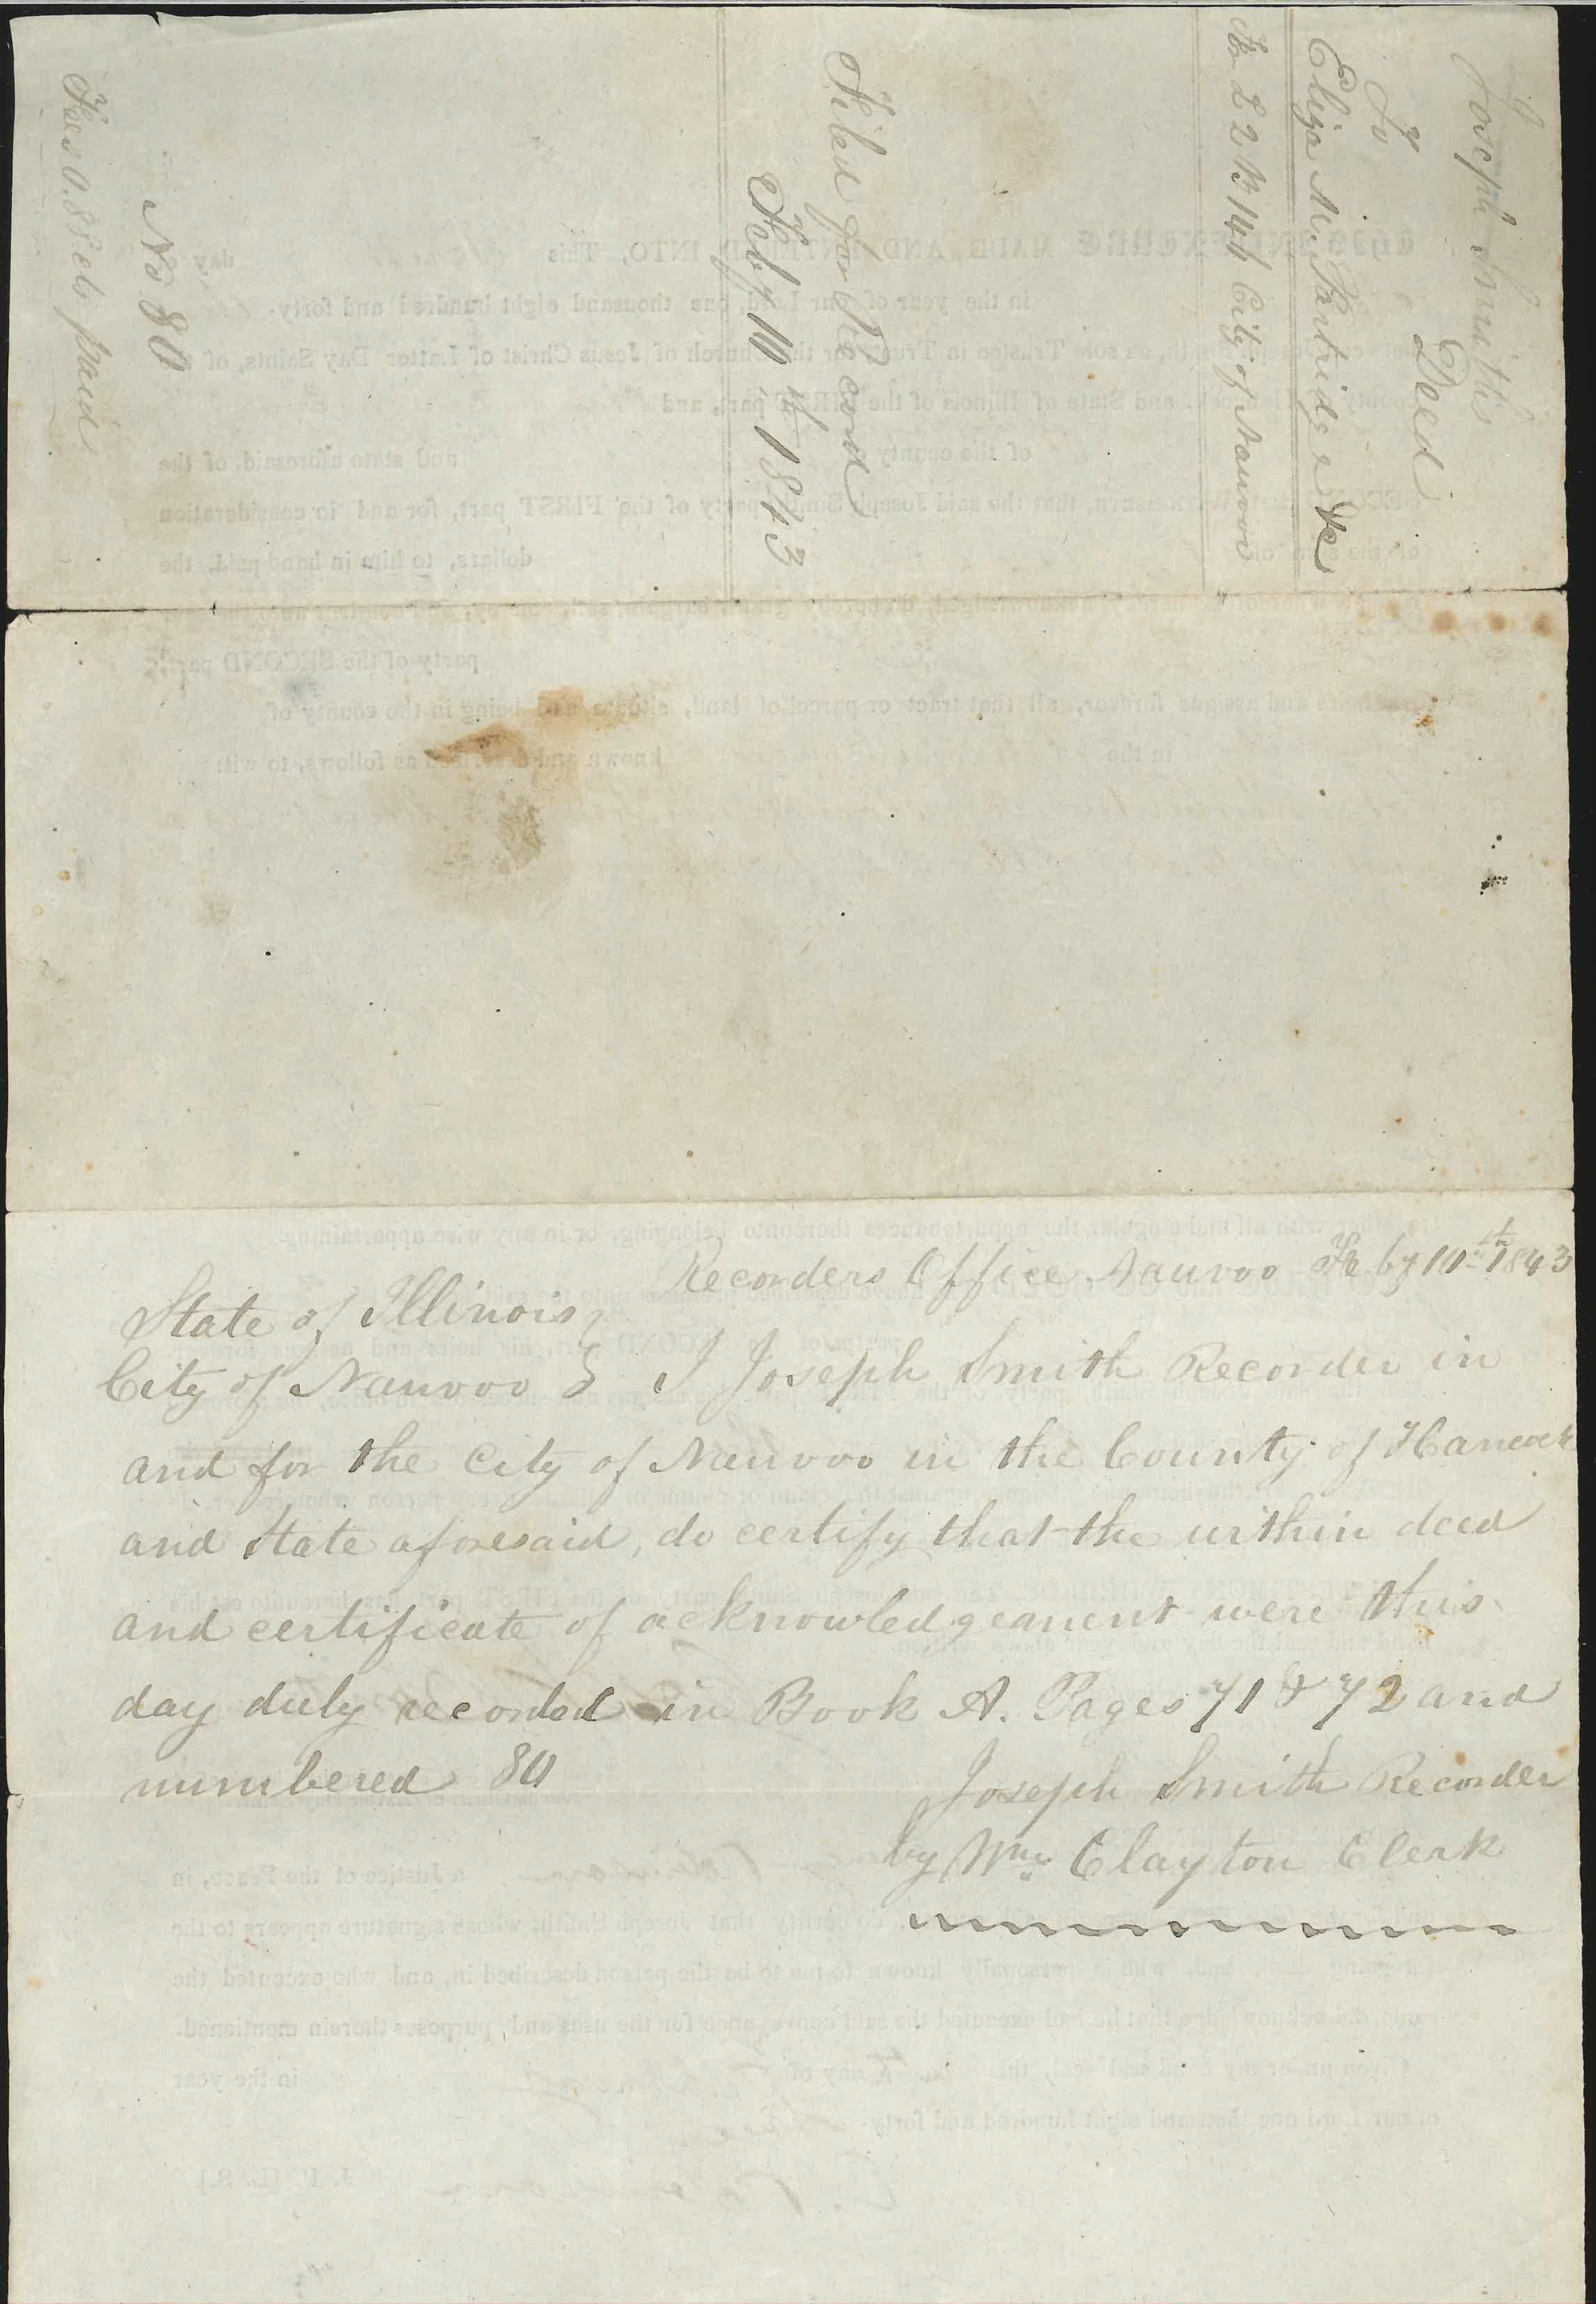 Joseph Smith
To Deed
Eliza M. Partridge &c
L 2 B 144 City of Nauvoo
Filed for Record
Feby 10th 1843
No 80
Fees 0.88 cts paid
Recorders Office Nauvoo Feby 10th 1843
State of Illinois
City of Nauvoo } I Joseph Smith Recorder in
and for the City of Nauvoo in the County of Hancock
and State aforesaid, do certify that the within deed
and certificate of acknowledgeament were this
day duly recorded in Book A. Pages 71 & 72 and
numbered 80
Joseph Smith Recorder
by Wm Clayton Clerk